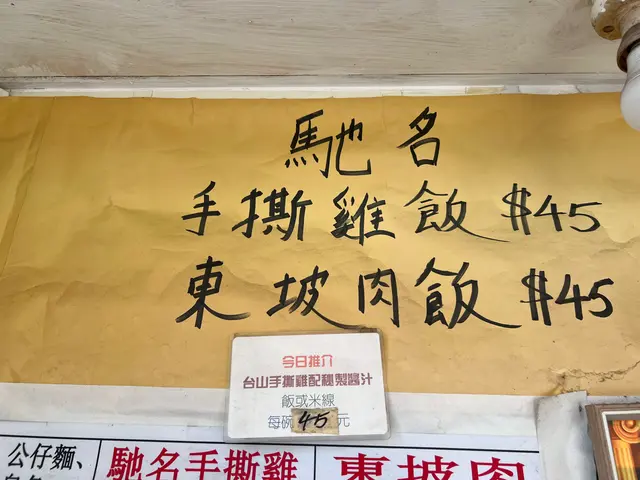 馳名
手撕雞飯 $45
東坡肉飯 $45
今日推介
台山手撕雞配秘製醬汁
飯或米線
每碗45元
公仔麵、
馳名手撕雞
東坡肉